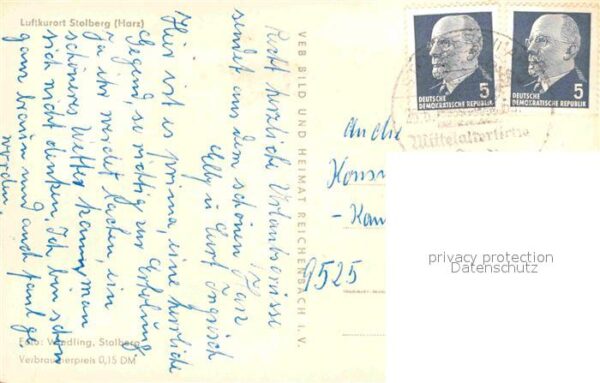 Luftkurort Stolberg (Harz)
Recht herzliche Urlaubsgrüsse
sendet aus dem schönen Harz
Elly u. Curt
Hier ist es prima, eine herrliche
Gegend, so richtig zur Erholung.
Ja ihr werdet lachen ein
schöneres Wetter kann man
sich nicht denken. Ich bin schon
ganz braun und auch faul ge-
worden.
Foto: Wedling, Stolberg
Verbraucherpreis 0,15 DM
VEB BILD UND HEIMAT REICHENBACH I. V.
An die
Kons
- Kau
9525
5
DEUTSCHE
DEMOKRATISCHE REPUBLIK
5
DEUTSCHE
DEMOKRATISCHE REPUBLIK
Mittelalterliche
privacy protection
Datenschutz